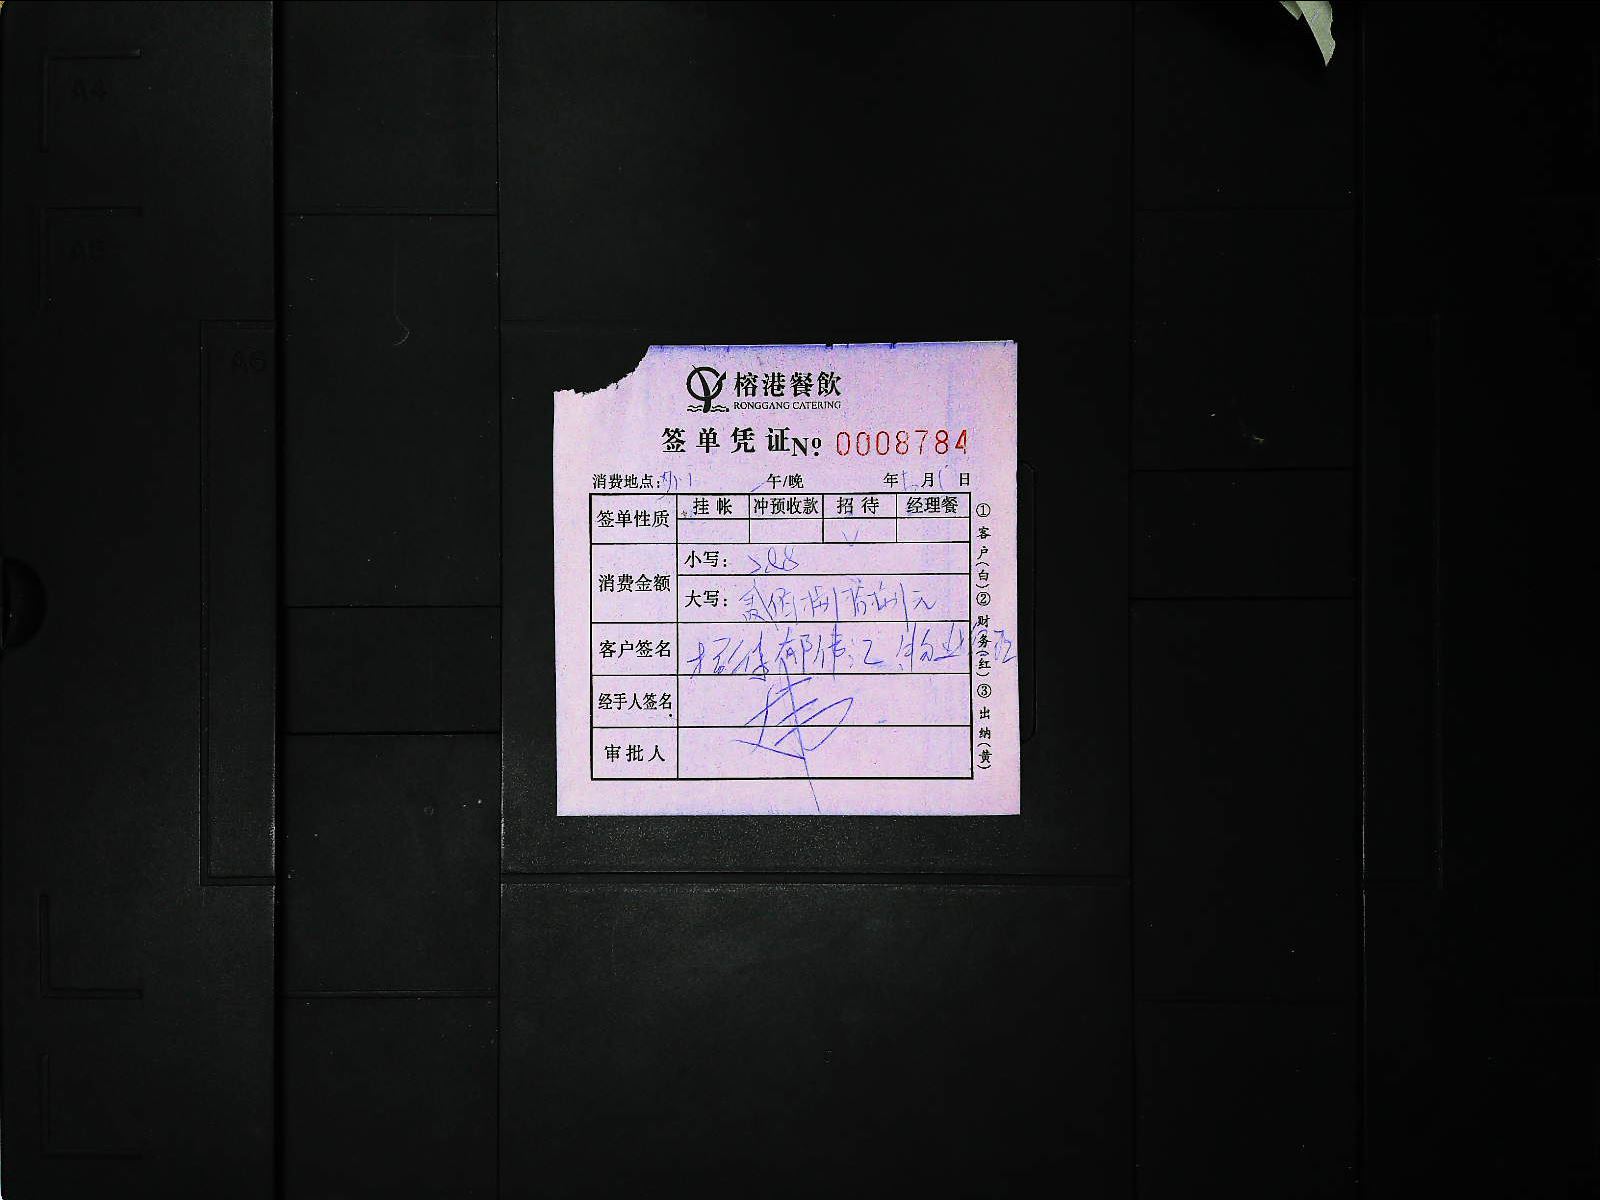 A4
A5
A6
榕港餐飲
RONGGANG CATERING
签单凭证 № 0008784
消费地点: 午/晚 年 月 日
签单性质 挂帐 冲预收款 招待 经理餐
消费金额 小写: 288
大写: 贰佰捌拾捌元
客户签名
经手人签名
审批人
①客户(白)②财务(红)③出纳(黄)